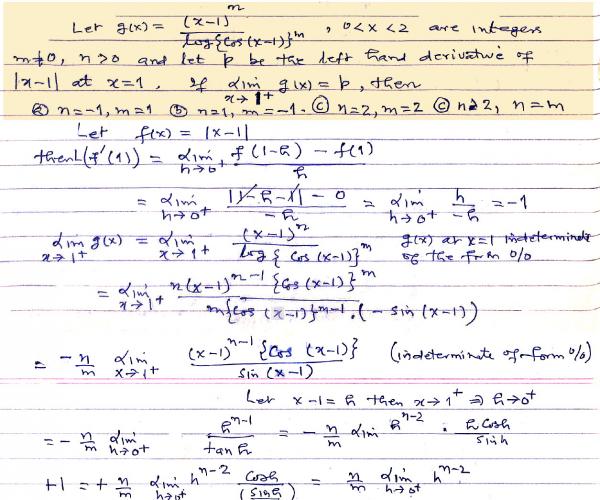 Let g(x) = (x-1)^n / log{cos(x-1)}^m , 0<x<2 are integers
m≠0, n>0 and let p be the left hand derivative of
|x-1| at x=1. If lim x→1+ g(x) = p, then
ⓐ n=-1, m=1 ⓑ n=1, m=-1. ⓒ n=2, m=2 ⓒ n>2, n=m
Let f(x) = |x-1|
then L(f'(1)) = lim h→0+ f(1-h) - f(1) / h
= lim h→0+ |1-h-1| - 0 / -h = lim h→0+ h / -h = -1
lim x→1+ g(x) = lim x→1+ (x-1)^n / log{cos(x-1)}^m g(x) at x=1 indeterminate of the form 0/0
= lim x→1+ n(x-1)^n-1 {cos(x-1)}^m / m{cos(x-1)}^m-1 . (-sin(x-1))
= -n/m lim x→1+ (x-1)^n-1 {cos(x-1)} / sin(x-1) (indeterminate of form 0/0)
Let x-1=h then x→1+ ⇒ h→0+
= -n/m lim h→0+ h^n-1 / tan h = -n/m lim h^n-2 . h cosh / sinh
+1 = +n/m lim h→0+ h^n-2 cosh / (sinh = n/m lim h→0+ h^n-2